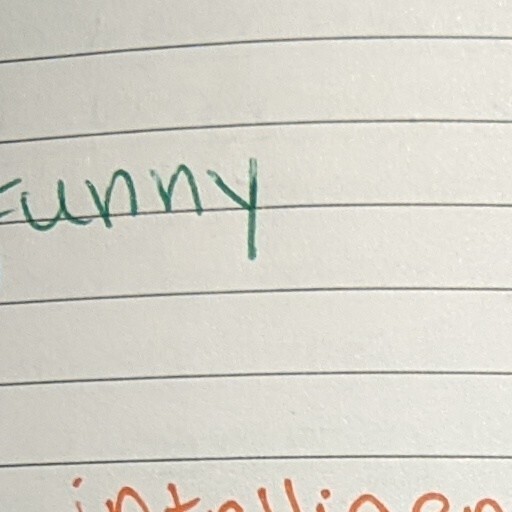 Funny
intelligen